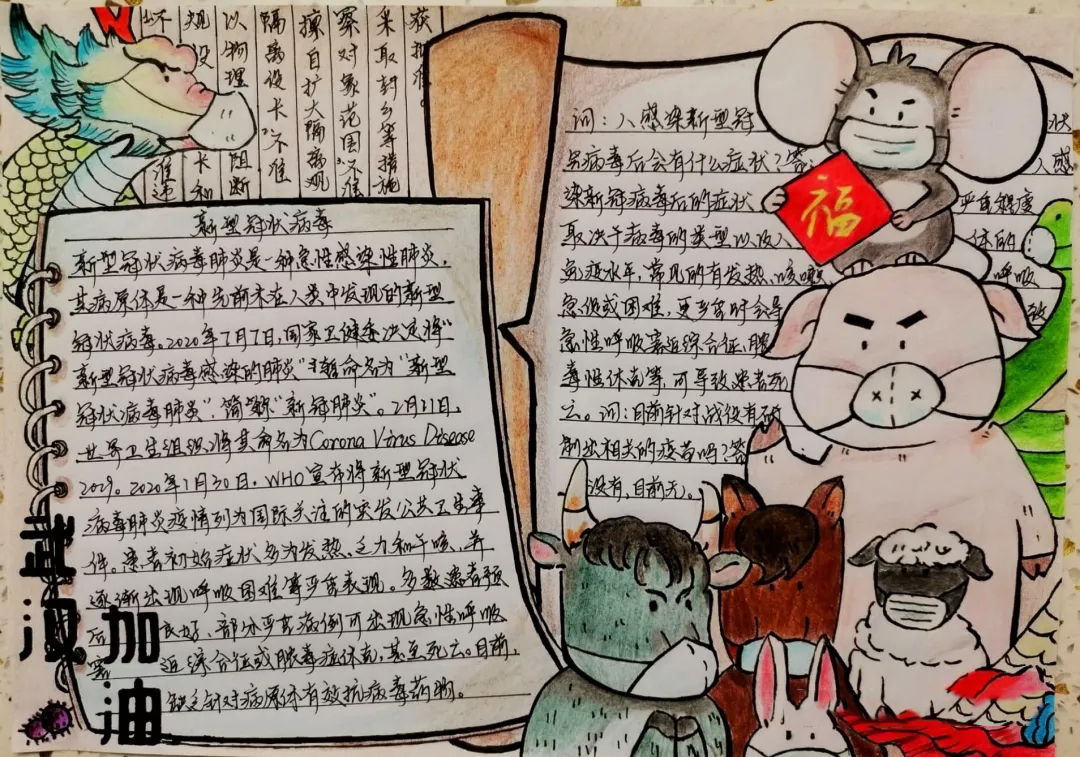 获批准。
采取封乡等措施
察对象范围,不准
擅自扩大隔离观
隔离设卡,不准
以物理 阻断
卡和
准违
新型冠状病毒
新型冠状病毒肺炎是一种急性感染性肺炎,
其病原体是一种先前未在人类中发现的新型
冠状病毒。2020年2月7日,国家卫健委决定将“
新型冠状病毒感染的肺炎”暂命名为“新型
冠状病毒肺炎”,简称“新冠肺炎”。2月11日,
世界卫生组织将其命名为Corona Virus Disease
2019。2020年1月30日,WHO宣布将新型冠状
病毒肺炎疫情列为国际关注的突发公共卫生事
件。患者初始症状多为发热、乏力和干咳,并
逐渐出现呼吸困难等严重表现。多数患者预
后 良好,部分严重病例可出现急性呼吸
窘 迫综合征或脓毒症休克,甚至死亡。目前,
缺乏针对病原体有效抗病毒药物。
武汉加油
问:人感染新型冠 状
病毒后会有什么症状?答: 人感
染新冠病毒后的症状 严重程度
取决于病毒的类型以及人 体的
免疫水平,常见的有发热、咳嗽 呼吸
急促或困难,更严重时会导 致
急性呼吸窘迫综合征、脓
毒性休克等,可导致患者死
亡。问:目前针对战役有研
制出相关的疫苗吗?答
没有,目前无。
福